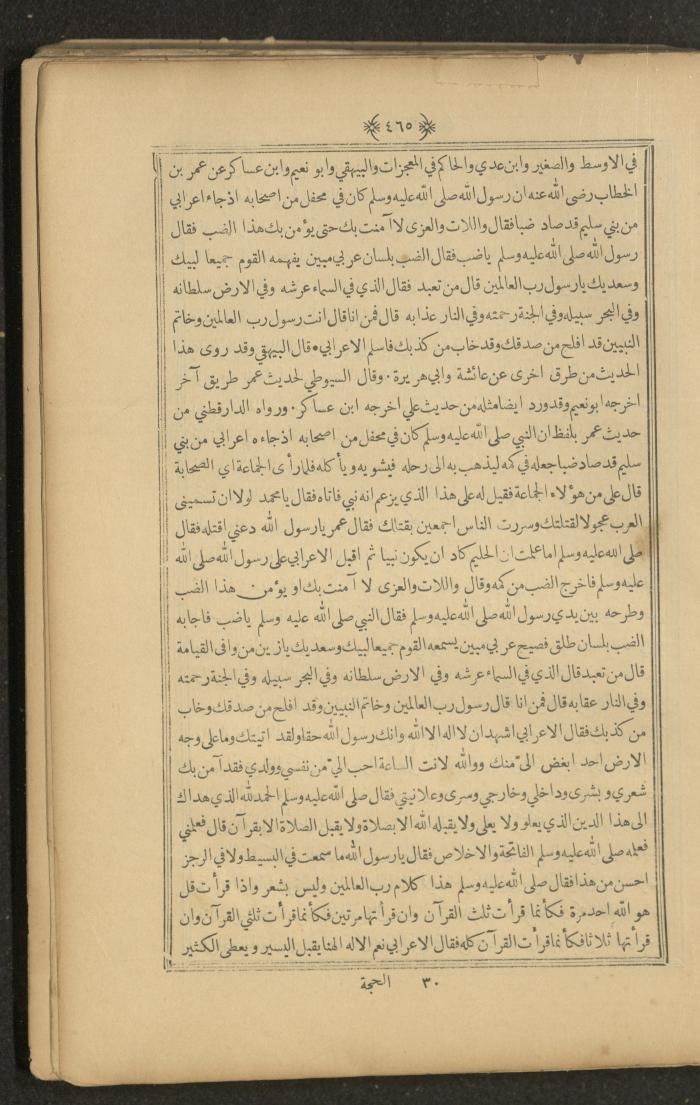 ٤٦٥
في الاوسط والصغير وابن عدي والحاكم في المعجزات والبيهقي وابو نعيم وابن عساكر عن عمر بن
الخطاب رضى الله عنه ان رسول الله صلى الله عليه وسلم كان في محفل من اصحابه اذجاء اعرابي
من بني سليم قد صاد ضبا فقال واللات والعزى لا آمنت بك حتى يؤمن بك هذا الضب فقال
رسول الله صلى الله عليه وسلم ياضب فقال الضب بلسان عربي مبين يفهمه القوم جميعا لبيك
وسعديك يارسول رب العالمين قال من تعبد فقال الذي في السماء عرشه وفي الارض سلطانه
وفي البحر سبيله وفي الجنة رحمته وفي النار عذابه قال فمن انا قال انت رسول رب العالمين وخاتم
النبيين قد افلح من صدقك وقد خاب من كذبك فاسلم الاعرابي • قال البيهقي وقد روى هذا
الحديث من طرق اخرى عن عائشة وابي هريرة . وقال السيوطي لحديث عمر طريق آخر
اخرجه ابو نعيم وقد ورد ايضا مثله من حديث علي اخرجه ابن عساكر . ورواه الدارقطني من
حديث عمر بلفظ ان النبي صلى الله عليه وسلم كان في محفل من اصحابه اذجاءه اعرابي من بني
سليم قد صاد ضبا جعله في كمه ليذهب به الى رحله فيشويه ويأكله فلما رأى الجماعة اي الصحابة
قال على من هؤلاء الجماعة فقيل له على هذا الذي يزعم انه نبي فاتاه فقال يامحمد لولا ان تسمينى
العرب عجولا لقتلتك وسررت الناس اجمعين بقتلك فقال عمر يارسول الله دعني اقتله فقال
صلى الله عليه وسلم اما علمت ان الحليم كاد ان يكون نبيا ثم اقبل الاعرابي على رسول الله صلى الله
عليه وسلم فاخرج الضب من كمه وقال واللات والعزى لا آمنت بك او يؤمن هذا الضب
وطرحه بين يدي رسول الله صلى الله عليه وسلم فقال النبي صلى الله عليه وسلم ياضب فاجابه
الضب بلسان طلق فصيح عربي مبين يسمعه القوم جميعا لبيك وسعديك يازين من وافى القيامة
قال من تعبد قال الذي في السماء عرشه وفي الارض سلطانه وفي البحر سبيله وفي الجنة رحمته
وفي النار عقابه قال فمن انا قال رسول رب العالمين وخاتم النبيين وقد افلح من صدقك وخاب
من كذبك فقال الاعرابي اشهد ان لا اله الا الله وانك رسول الله حقا ولقد اتيتك وما على وجه
الارض احد ابغض اليّ منك ووالله لانت الساعة احب اليّ من نفسي وولدي فقد آمن بك
شعري وبشرى وداخلي وخارجي وسرى وعلانيتي فقال صلى الله عليه وسلم الحمد لله الذي هداك
الى هذا الدين الذي يعلو ولا يعلى ولا يقبله الله الا بصلاة ولا يقبل الصلاة الا بقرآن قال فعلمني
فعلمه صلى الله عليه وسلم الفاتحة والاخلاص فقال يارسول الله ما سمعت في البسيط ولا في الرجز
احسن من هذا فقال صلى الله عليه وسلم هذا كلام رب العالمين وليس بشعر واذا قرأت قل
هو الله احد مرة فكأنما قرأت ثلث القرآن وان قرأتها مرتين فكأنما قرأت ثلثي القرآن وان
قرأتها ثلاثا فكأنما قرأت القرآن كله فقال الاعرابي نعم الاله الهنا يقبل اليسير ويعطى الكثير
٣٠ الحجة